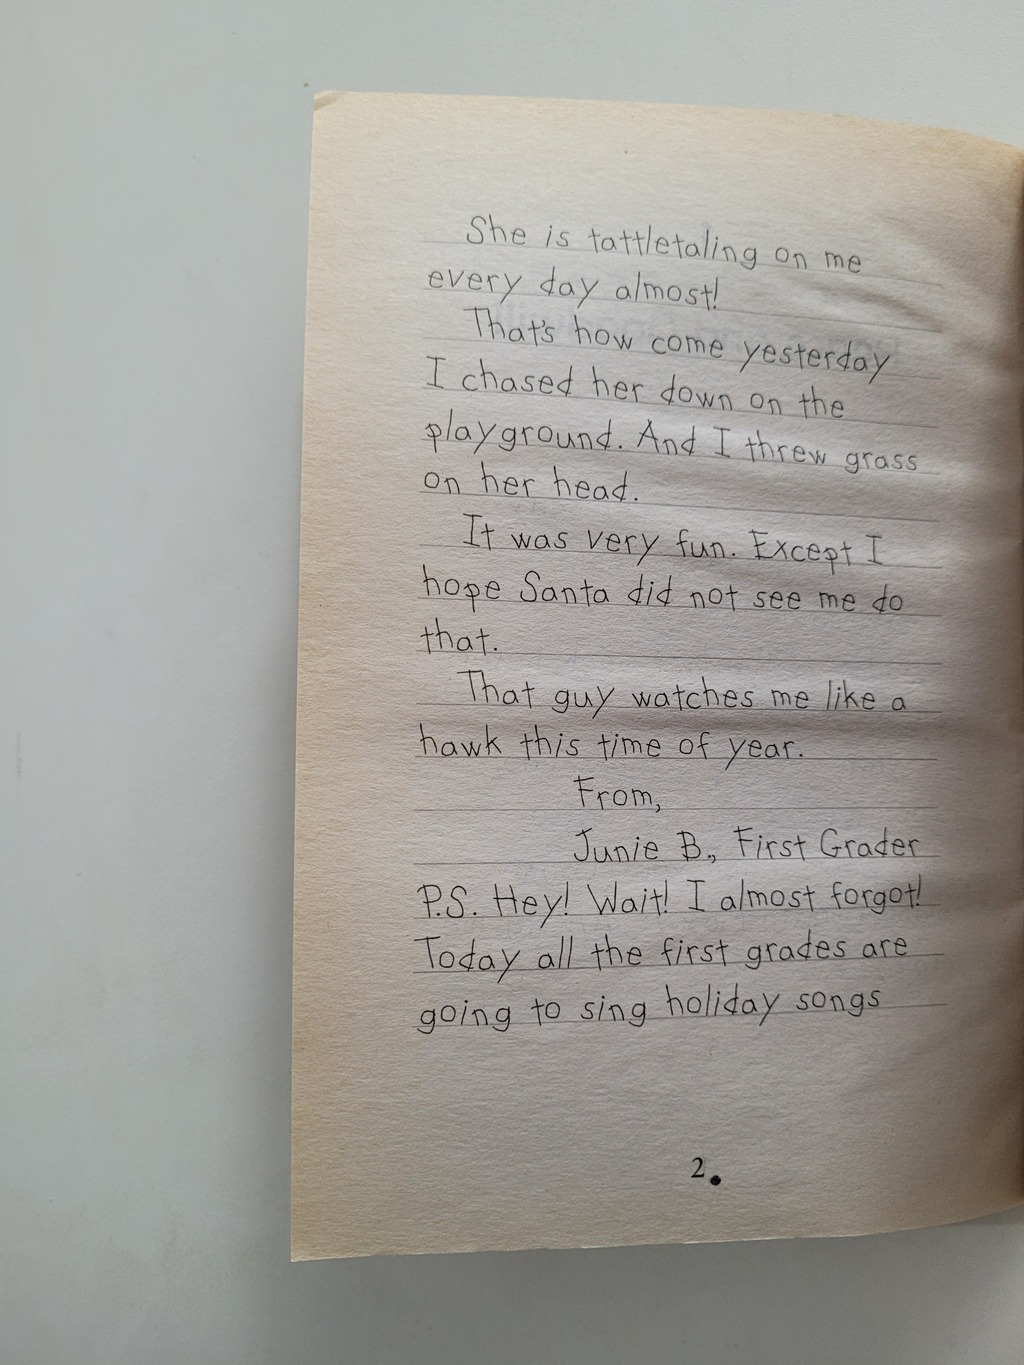 She is tattletaling on me
every day almost!
That's how come yesterday
I chased her down on the
playground. And I threw grass
on her head.
It was very fun. Except I
hope Santa did not see me do
that.
That guy watches me like a
hawk this time of year.
From,
Junie B., First Grader
P.S. Hey! Wait! I almost forgot!
Today all the first grades are
going to sing holiday songs
2